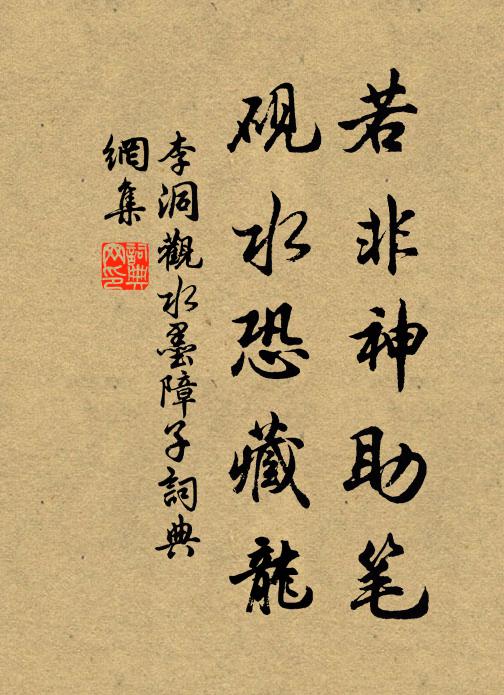 若非神助笔
砚水恐藏龍
李洞觀水墨障子詞典
網集
詞典
网印